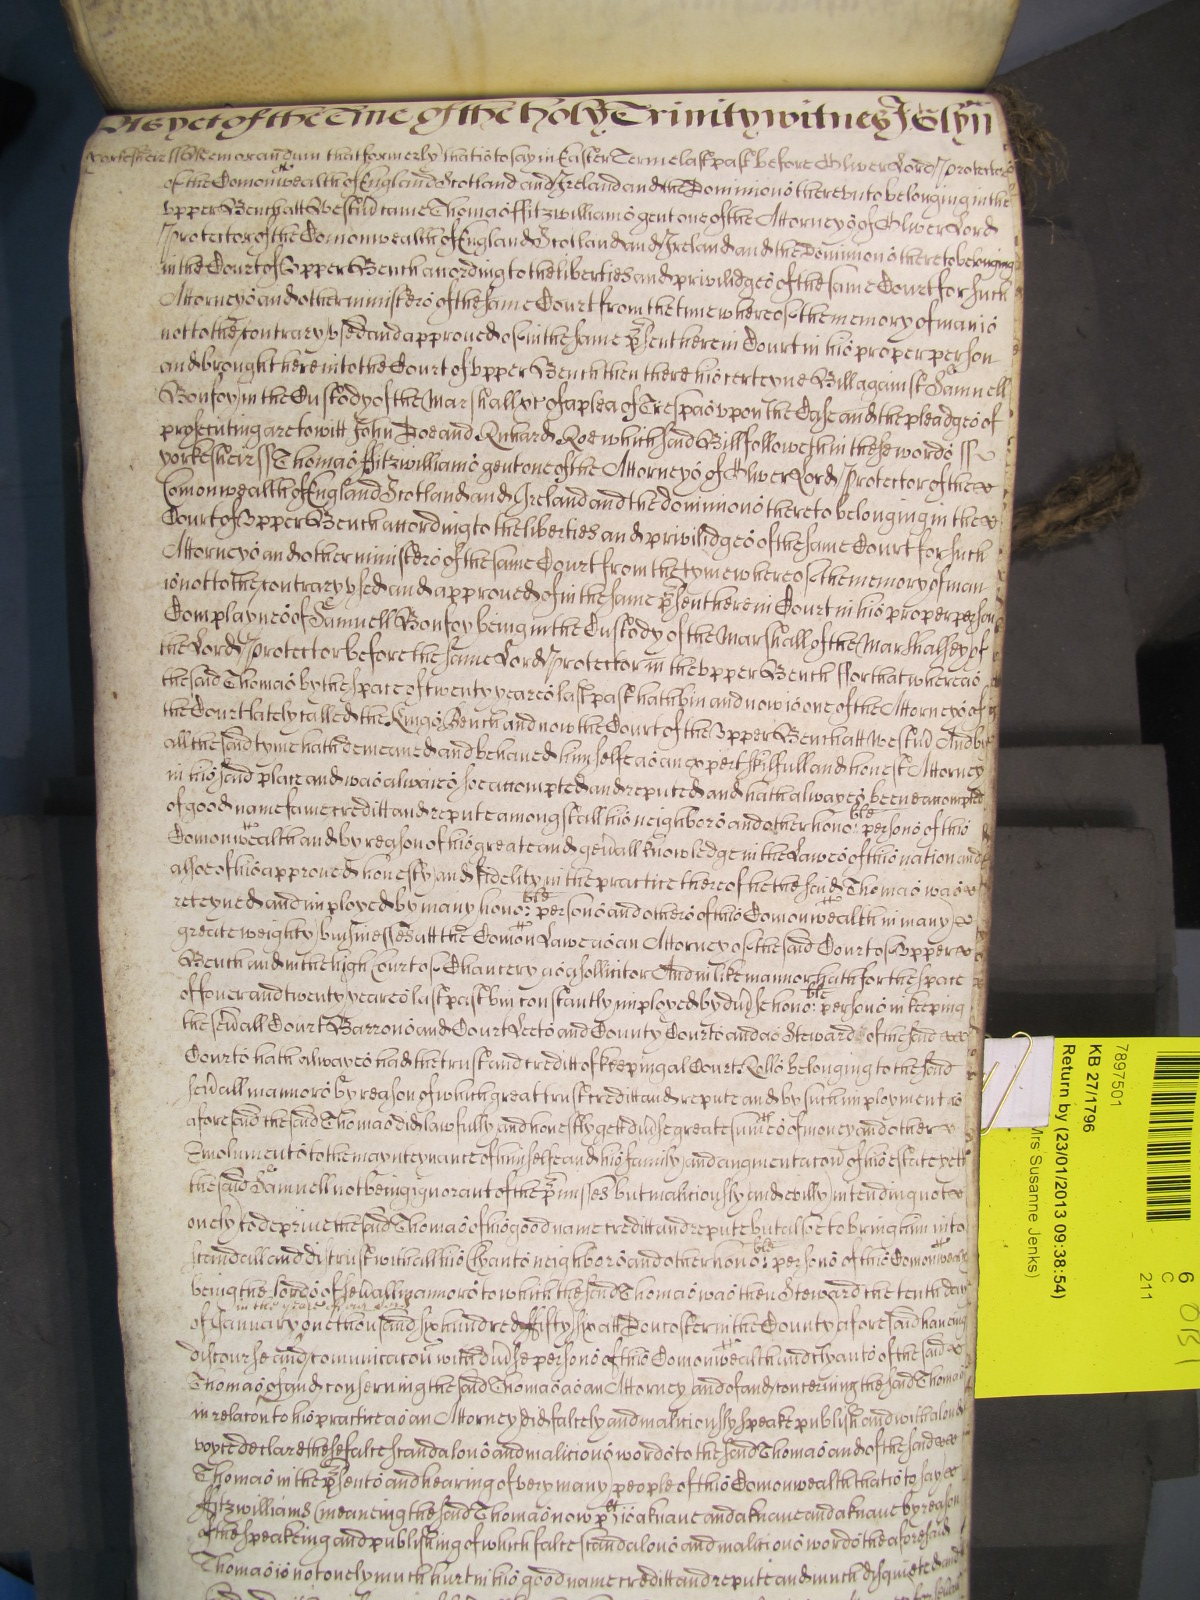 As yet of the Tme of the holy Trinity witnes J Glyn
Yorkesheir ss Memorandum that formerly that is to say in Easter Terme last past before Oliver Lord Protector
of the Comonwealth of England Scotland and Ireland and the Dominions thereunto belonging in the
upper Bench att Westmr came Thomas Ffitzwilliams gent one of the Attorneys of Oliver Lord
Protector of the Comonwealth of England Scotland and Ireland and the Dominions thereto belonging
in the Court of Upper Bench according to the liberties and priviledges of the same Court for such
Attorneys and other ministers of the same Court from the time whereof the memory of man is
not to the contrary used and approved of in the same psent here in Court in his proper person
and brought here into the Court of upper Bench then there his certeyne Bill against Samuell
Bonfoy in the Custody of the Marshall &c of a plea of Trespas upon the Case and the pleadges of
prosecuting are to witt John Doe and Richard Roe which said Bill followeth in these words ss
Yorkesheir ss Thomas Ffitzwilliams gent one of the Attorneys of Oliver Lord Protector of the
Comonwealth of England Scotland and Ireland and the dominions thereto belonging in the
Court of Upper Bench according to the liberties and priviledges of the same Court for such
Attorneys and other ministers of the same Court from the tyme whereof the memory of man
is not to the contrary used and approved of in the same psent here in Court in his proper person
Complaynes of Samuell Bonfoy being in the Custody of the Marshall of the Marshalsey of
the Lord Protector before the same Lord Protector in the upper Bench Ffor that whereas
the said Thomas by the space of twenty yeares last past hath bin and now is one of the Attorneys of
the Court lately called the Kings Bench and now the Court of the Upper Bench att Westmr And by
all the said tyme hath demeaned and behaved himselfe as an expert skilfull and honest Attorney
in his said place and was alwaies soe accompted and reputed and hath alwayes beene accompted
of good name fame creditt and repute amongst all his neighbors and other honoble persons of this
Comonwealth and by reason of his greate and genall knowledge in the Lawes of this nation and
alsoe of his approved honesty and fidelity in the practice thereof he the said Thomas was
reteyned and imployed by many honoble persons and others of this Comonwealth in many
greate weighty businesses att the Comon Lawe as an Attorney of the said Court of Upper
Bench and in the high Court of Chancery as a sollicitor And in like mannor hath for the space
of fouer and twenty yeares last past bin constantly imployed by divse honoble persons in keeping
the sevall Court Barrons and Court Leets and County Courts and as Steward of the said
Courts hath alwayes had the trust and creditt of keeping al Courts Rolls belonging to the said
sevall mannors by reason of which great trust creditt and repute and by such imployment as
aforesaid the said Thomas did lawfully and honestly gett divse greate sumes of money and other
Emoluments to the maynteynance of himselfe and his family and augmentacon of his estate yett
the said Samuell not being ignorant of the pmisses but maliciously and evilly intending not
onely to deprive the said Thomas of his good name creditt and repute but alsoe to bring him into
scandall and distrust with all his Clyants neighbors and other honoble persons of this Comonwealth
being the lords of sevall mannors to which the said Thomas was then Steward the tenth day
of January in the yeare of our Lord one thousand six hundred fifty six att Doncaster in the County aforesaid haveing
discourse and comunicacon with divse persons of this Comonwealth and clyants of the said
Thomas of and conserning the said Thomas as an Attorney and of and concerning the said Thomas
in relacon to his practice as an Attorney did falcely and maliciously speake publish and with a loud
voyce declare these falce scandalous and malicious words to the said Thomas and of the said
Thomas in the psents and hearing of very many people of this Comonwealth that is to say
Ffitzwilliams (meaneing the said Thomas now plt) is a knave and a knave and a knave by reason
of the speakeing and publishing of which falce scandalous and malicious words the aforesaid
Thomas is not onely much hurt in his good name creditt and repute and much disquieted and
7897501
KB 27/1796
Return by (23/01/2013 09:38:54)
Mrs Susanne Jenks)
6
C
211